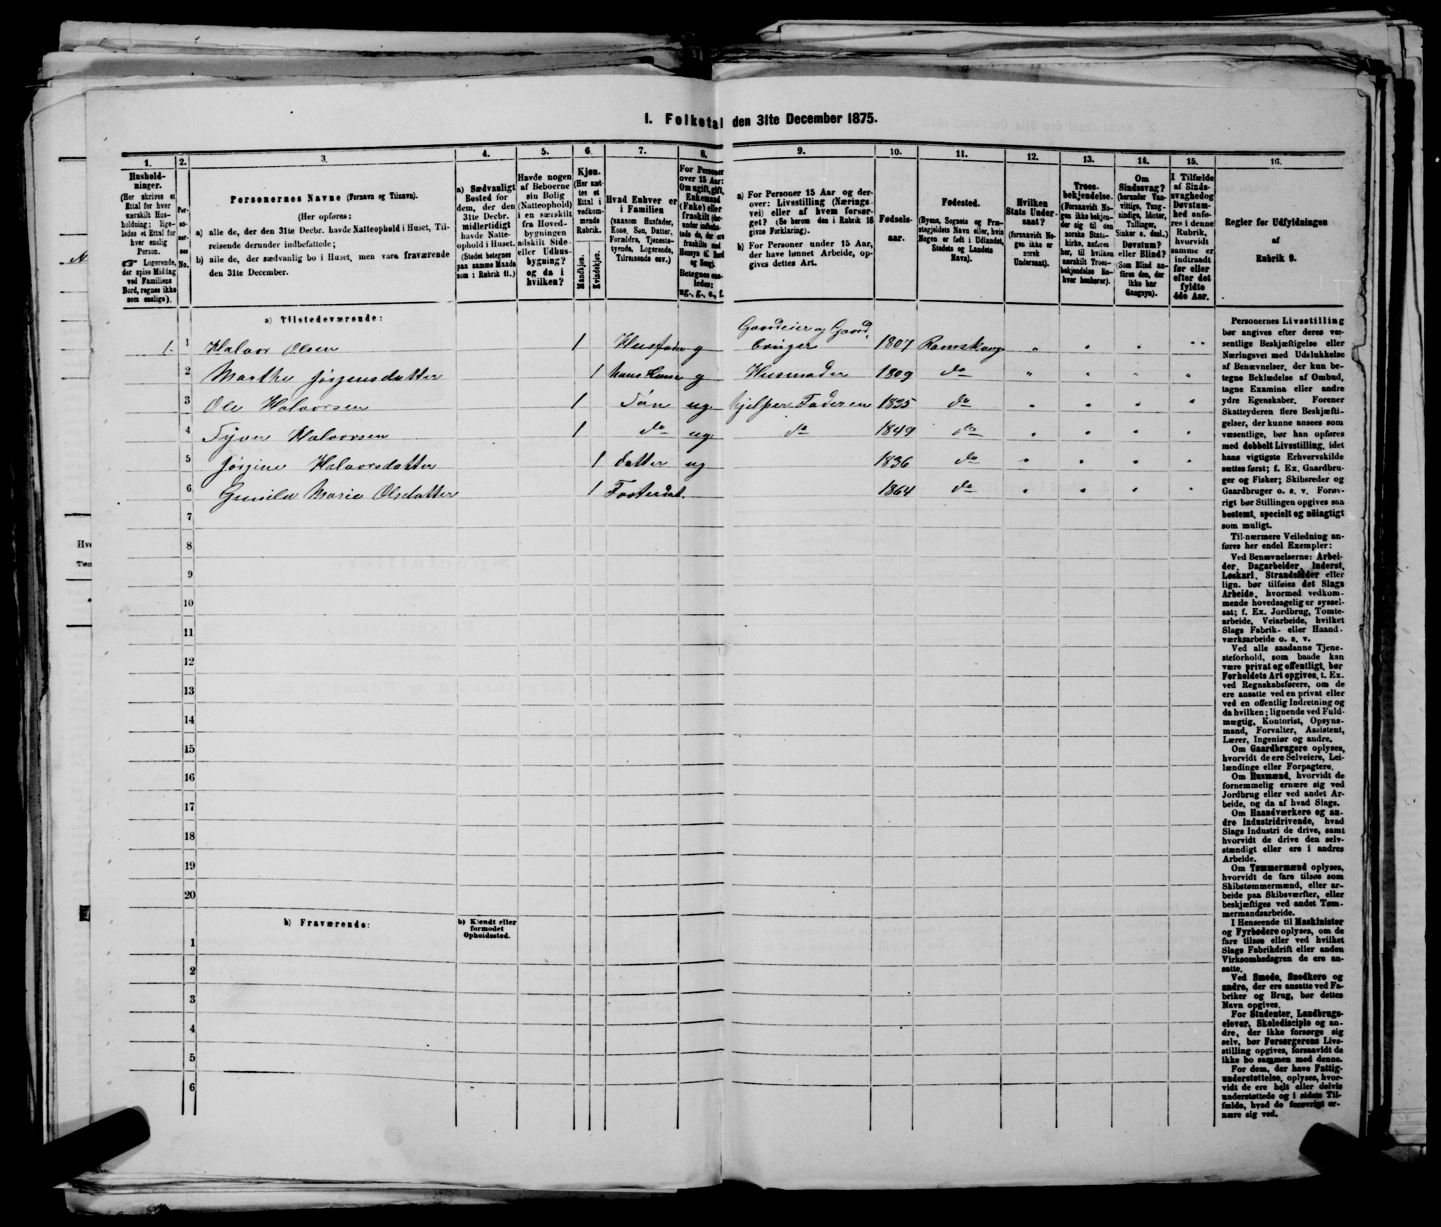 I. Folketal den 31te December 1875.
1.
2.
3.
4.
5.
6.
7.
8.
9.
10.
11.
12.
13.
14.
15.
16.
Hushold-
ninger.
(Her skrives et
Ettal for hver
særskilt Hus-
holdning; lige-
ledes et Ettal for
hver enslig
Person.
☞ Logerende,
der spise Middag
ved Familiens
Bord, regnes ikke
som enslige).
Per-
so-
nes
No.
Personernes Navne (Fornavn og Tilnavn).
(Her opføres:
a) alle de, der den 31te Decbr. havde Natteophold i Huset, Til-
reisende derunder indbefattede;
b) alle de, der sædvanlig bo i Huset, men vare fraværende
den 31te December.
a) Sædvanligt
Bosted for
dem, der den
31te Decbr.
midlertidigt
havde Natte-
ophold i Huset.
(Stedet betegnes
paa samme Maade
som i Rubrik 11.)
Havde nogen
af Beboerne
sin Bolig
(Natteophold)
i en særskilt
fra Hoved-
bygningen
adskilt Side-
eller Udhus-
bygning?
og da i
hvilken?
Kjøn.
(Her sæt-
tes et
Ettal i
vedkom-
mende
Rubrik.
Mandkjøn.
Kvindekjøn.
Hvad Enhver er
i Familien
(saasom Husfader,
Kone, Søn, Datter,
Forældre, Tjeneste-
tyende, Logerende,
Tilreisende osv.)
For Personer
over 15 Aar:
Om ugift, gift,
Enkemand
(Enke) eller
fraskilt
Betegnes saa-
ledes:
ug., g., e., f.
a) For Personer 15 Aar og der-
over: Livsstilling (Nærings-
vei) eller af hvem forsør-
get? (Se herom den i Rubrik 16
givne Forklaring).
b) For Personer under 15 Aar,
der have lønnet Arbeide, op-
gives dettes Art.
Fødsels-
aar.
Fødested.
(Byens, Sognets eller Præ-
stegjeldets Navn eller, hvis
Nogen er født i Udlandet,
Stedets og Landets
Navn).
Hvilken
Stats Under-
saat?
(forsaavidt No-
gen ikke er
norsk
Undersaat).
Troes-
bekjendelse.
(Forsaavidt No-
gen ikke bekjen-
der sig til den
norske Stats-
kirke, anføres
her, til hvilken
særskilt Troes-
bekjendelse En-
hver henhører).
Om
Sindssvag?
(herunder Van-
vittige, Tung-
sindige, Idioter,
Tullinger,
Sinker o. desl.)
Døvstum?
eller Blind?
(Som Blind an-
føres den, der
ikke har
Gangsyn).
I Tilfælde
af Sinds-
svaghed og
Døvstum-
hed anfø-
res i denne
Rubrik,
hvorvidt
samme er
indtraadt
før eller
efter det
fyldte
4de Aar.
Regler for Udfyldningen
af
Rubrik 9.
a) Tilstedeværende:
1. 1 Halvor Olsen 1 Husfader g Gaardeier og Gaard- 1807 Romskoug
bruger
2 Marthe Jørgensdatter 1 hans Kone g Husmoder 1809 do
3 Ole Halvorsen 1 Søn ug. hjelper Faderen 1835 do
4 Syver Halvorsen 1 do ug. do 1849 do
5 Jørgine Halvorsdatter 1 datter ug 1836 do
6 Gunild Marie Olsdatter 1 Fosterdat. 1864 do
7
8
9
10
11
12
13
14
15
16
17
18
19
20
b) Fraværende:
b) Kjendt eller
formodet
Opholdssted.
1
2
3
4
5
6
Personernes Livsstilling
bør angives efter deres væ-
sentlige Beskjæftigelse eller
Næringsvei med Udelukkelse
af Benævnelser, der kun be-
tegne Beklædelse af Ombud,
tagne Examina eller andre
ydre Egenskaber. Forener
Skatteyderen flere Beskjæfti-
gelser, der kunne ansees som
væsentlige, bør han opføres
med dobbelt Livsstilling, idet
hans vigtigste Erhvervskilde
sættes først; f. Ex. Gaardbru-
ger og Fisker; Skibsreder og
Gaardbruger o. s. v. Forøv-
rigt bør Stillingen opgives saa
bestemt, specielt og nöiagtigt
som muligt.
Til nærmere Veiledning an-
føres her endel Exempler:
Ved Benævnelserne: Arbei-
der, Dagarbeider, Inderst,
Løskarl, Strandsidder eller
lign. bør tilføies det Slags
Arbeide, hvormed vedkom-
mende hovedsagelig er syssel-
sat; f. Ex. Jordbrug, Tomte-
arbeide, Veiarbeide, hvilket
Slags Fabrik- eller Haand-
værksarbeide o. s. v.
Ved alle saadanne Tjene-
steforhold, som baade kan
være privat og offentligt, bør
Forholdets Art opgives, t. Ex.
ved Regnskabsførere, om de
ere ansatte ved en privat eller
ved en offentlig Indretning og
da hvilken; lignende ved Fuld-
mægtig, Kontorist, Opsyns-
mand, Forvalter, Assistent,
Lærer, Ingeniør og andre.
Om Gaardbrugere oplyses,
hvorvidt de ere Selveiere, Lei-
lændinge eller Forpagtere.
Om Husmænd, hvorvidt de
fornemmelig ernære sig ved
Jordbrug eller ved andet Ar-
beide, og da af hvad Slags.
Om Haandværkere og an-
dre Industridrivende, hvad
Slags Industri de drive, samt
hvorvidt de drive den selv-
stændigt eller ere i andres
Arbeide.
Om Tømmermænd oplyses,
hvorvidt de fare tilsøs som
Skibstømmermænd, eller ar-
beide paa Skibsværfter, eller
beskjæftiges ved andet Tøm-
mermandsarbeide.
I Henseende til Maskinister
og Fyrbødere oplyses, om de
fare tilsøs eller ved hvilket
Slags Fabrikdrift eller anden
Virksomhedsgren de ere an-
satte.
Ved Smede, Snedkere og
andre, der ere ansatte ved Fa-
briker og Brug, bør dettes
Navn opgives.
For Studenter, Landbrugs-
elever, Skoledisciple og an-
dre, der ikke forsørge sig
selv, bør Forsørgerens Livs-
stilling opgives, forsaavidt de
ikke bo sammen med denne.
For dem, der have Fattig-
understøttelse, oplyses, hvor-
vidt de ere helt eller delvis
understøttede og i sidste Til-
fælde, hvad de forøvrigt er-
nære sig ved.